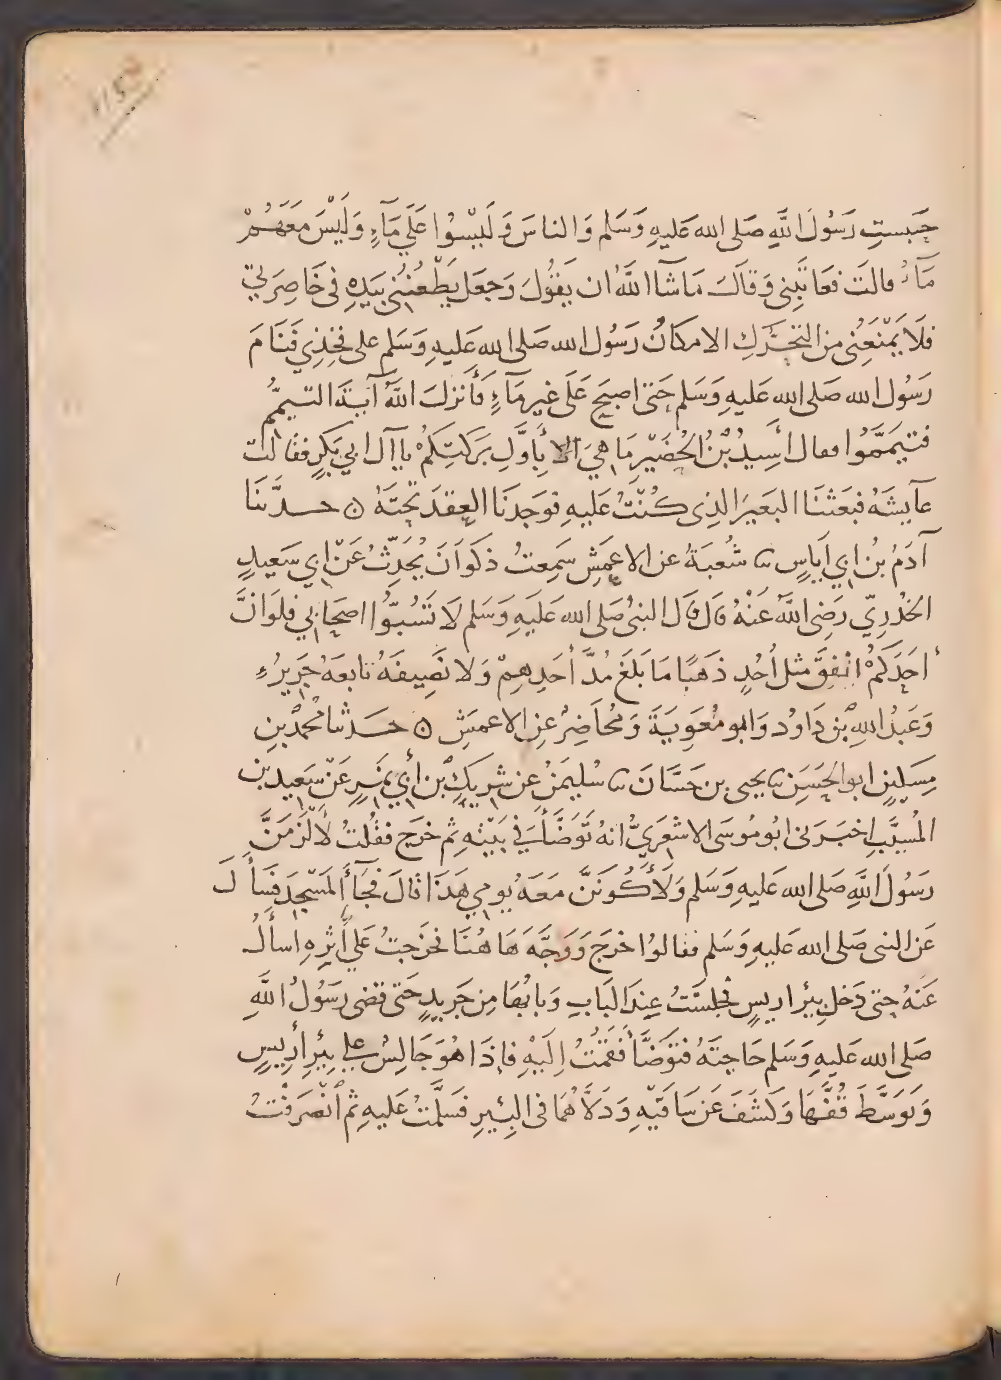 حَبَستِ رَسُولَ اللَّهِ صَلى الله عَليهِ وَسَلم وَالناسَ وَلَيْسُوا عَلَي مَآءٍ وَلَيْسَ مَعَهُمْ
مَآءٌ قالَت فعَاتَبنِى وَقالَ مَا شآ اللَّهُ ان يَقُولَ وَجعَل يَطْعُنُنِى بيَدِهِ فى خَاصِرَتِي
فلَا يَمْنَعُنِى من التحَرُّكِ الا مكَانُ رَسُول الله صَلى الله عَليهِ وَسَلم على فخِذِي فَنَامَ
رَسُول الله صَلى الله عَليهِ وَسَلم حَتى اصبَح عَلَى غيرِ مَآءٍ فَأَنزلَ اللَّهُ آيَةَ التيمُّم
فتيَمَّمُوا فقال أُسَيدُ بْنُ الحُضَيْرِ مَا هِيَ الا بِأوَّلِ برَكتِكُمْ يا آل ابي بَكرٍ فقالت
عآيشَهُ فبَعَثنَا البَعيرَ الذِى كُنْتُ عَليهِ فوَجدنَا العِقدَ تحتَهُ ۞ حدَّثنَا
آدَمُ بْنُ ابي اَياسٍ نا شُعبَةُ عن الاعمَش سَمِعتُ ذكوَانَ يُحَدِّثُ عَنْ ابي سَعيدٍ
الخدْرِيّ رَضِى اللَّهُ عَنْهُ قال قال النبىُّ صَلى الله عَليَهِ وَسَلم لَا تَسُبُّوا اصحَابي فلوَ انَّ
أحَدَكمْ انْفقَ مثل أُحُدٍ ذهَبًا مَا بَلغَ مُدَّ أحَدِهِمْ وَلا نَصِيفَهُ تابعَهُ جَرِيرٌ
وَعَبدُ اللَّهِ بن دَاوُد وَابو مُعَوِيَةَ وَمُحَاضِرٌ عن الاعمش ۞ حَدثنا محمدُ بن
مِسكينٍ ابو الحَسَنِ نا يحيى بن حَسَّانَ نا سُليمَنُ عن شرِيكِ بن أبي نمِرٍ عَنْ سَعيد بن
المُسَيَّب اخبَرَنى ابو مُوسَى الاشعَرِيُّ انهُ تَوَضَّأَ فى بَيْتِهِ ثم خرَج فقُلتُ لَألزمَنَّ
رَسُولَ اللَّهِ صَلى الله عَليهِ وَسَلم وَلَأَكُونَنَّ مَعَهُ يومي هَذَا قالَ فجَآء المَسْجدَ فسَأَلَ
عَن النبى صَلى الله عَليهِ وَسَلم فقالوُا خرَجَ وَوَجَّهَ هَا هُنَا فخرَجتُ عَلَي أثرِهِ اسأَلُ
عَنْهُ حَتى دَخل بئرَ اريسٍ فجلسَتُ عِندَ البَابِ وَبابُهَا مِن جَريدٍ حَتى قضى رَسُولُ اللَّهِ
صَلى الله عَليهِ وَسَلم حَاجتَهُ فتوَضَّأَ فقمْتُ إليْهِ فاذَا هُوَ جَالِسٌ على بئرِ أريسٍ
وَتوَسَّطَ قُفَّهَا وَكشَفَ عَن سَاقيْهِ وَدَلَّاهُمَا فى البئِيرِ فسَلَّمتُ عَليهِ ثم انصَرفتُ